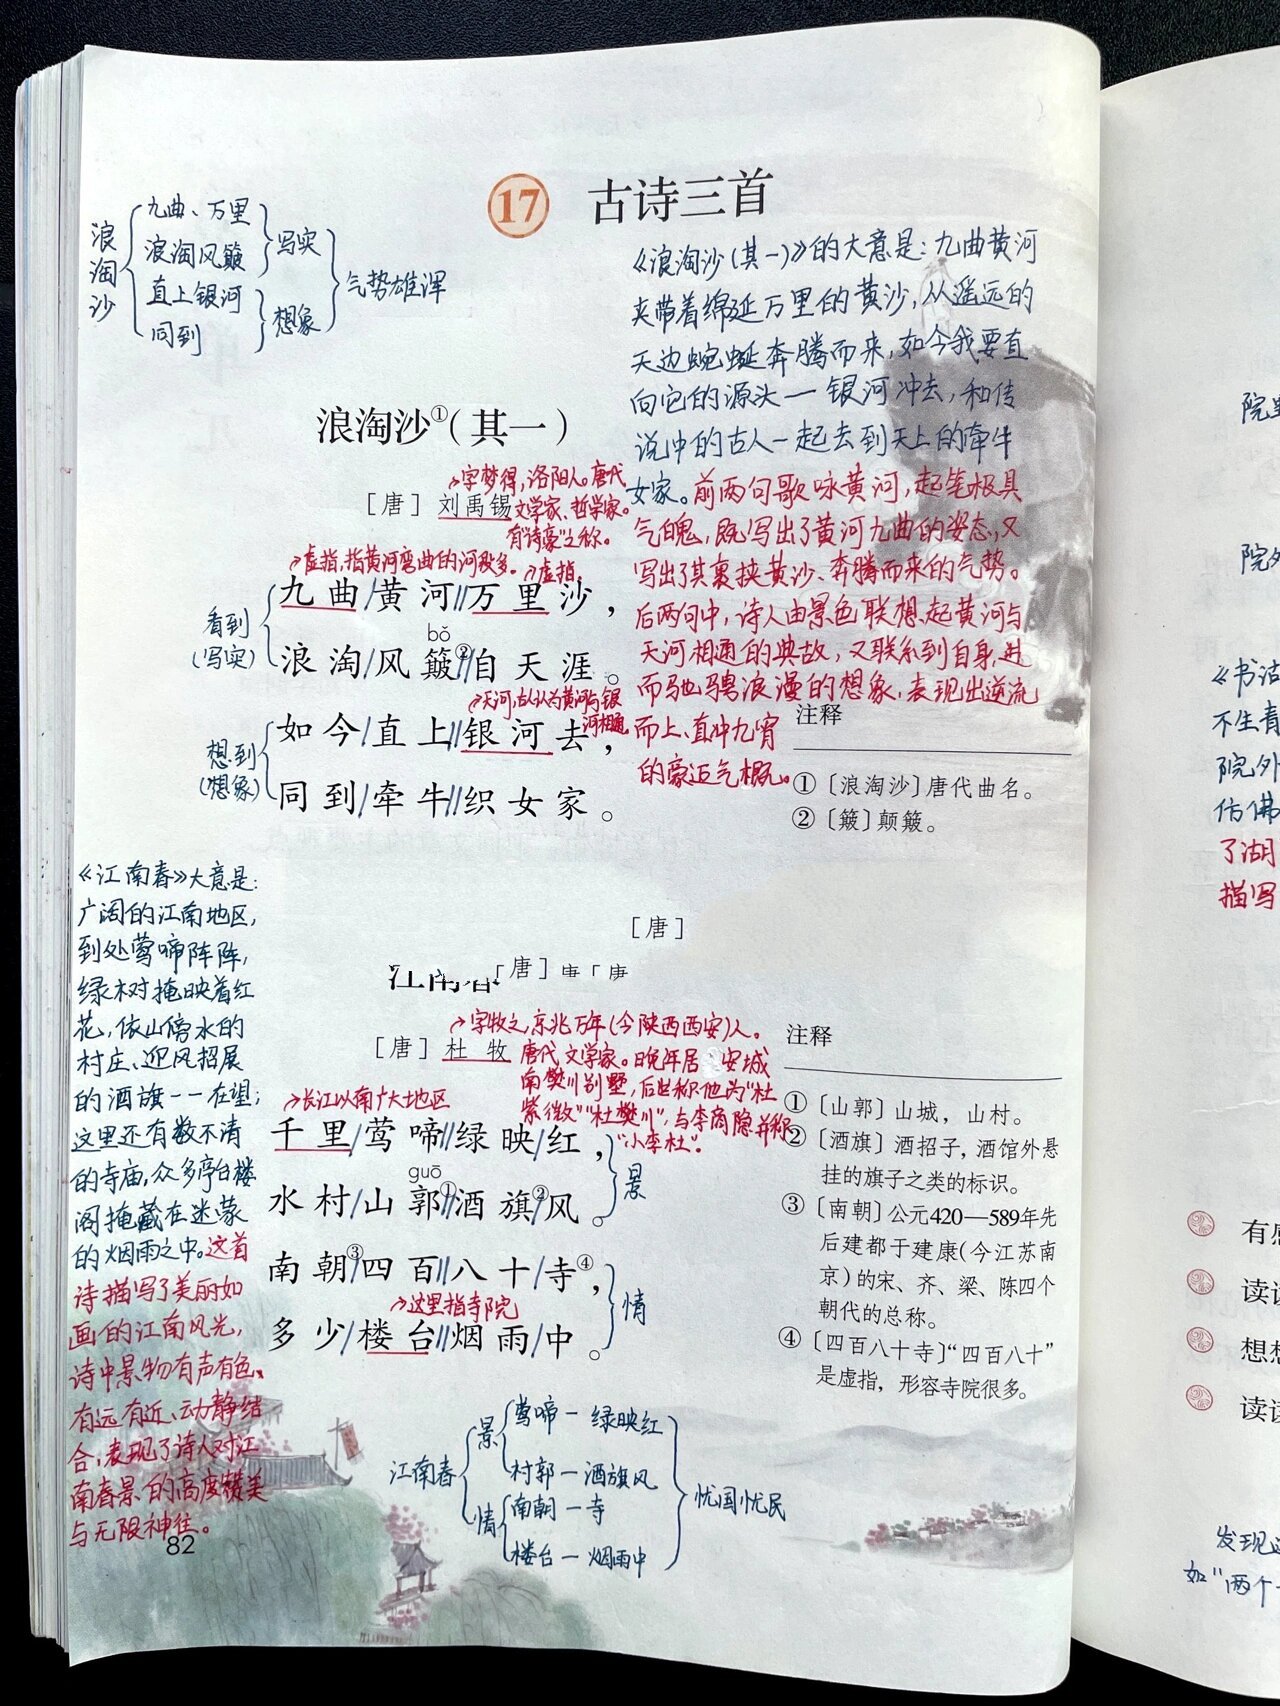 17 古诗三首
浪淘沙
九曲、万里
浪淘风簸
写实
直上银河
同到
想象
气势雄浑
《浪淘沙(其一)》的大意是：九曲黄河
夹带着绵延万里的黄沙，从遥远的
天边蜿蜒奔腾而来，如今我要直
向它的源头一银河冲去，和传
说中的古人一起去到天上的牵牛
女家。前两句歌咏黄河，起笔极具
气魄，既写出了黄河九曲的姿态，又
写出了其裹挟黄沙、奔腾而来的气势。
后两句中，诗人由景色联想起黄河与
天河相通的典故，又联系到自身，进
而驰骋浪漫的想象，表现出逆流
而上、直冲九霄
的豪迈气概。
浪淘沙①(其一)
[唐] 刘禹锡
字梦得，洛阳人。唐代
文学家、哲学家。
有“诗豪”之称。
虚指，指黄河弯曲的河段多。
虚指
看到
(写实)
九曲/黄河//万里沙，
bǒ
浪淘/风簸②//自天涯。
天河，古人认为黄河与银
河相通
想到
(想象)
如今/直上//银河去，
同到/牵牛//织女家。
注释
①〔浪淘沙〕唐代曲名。
②〔簸〕颠簸。
《江南春》大意是：
广阔的江南地区，
到处莺啼阵阵，
绿树掩映着红
花，依山傍水的
村庄、迎风招展
的酒旗一一在望；
这里还有数不清
的寺庙，众多亭台楼
阁掩藏在迷蒙
的烟雨之中。这首
诗描写了美丽如
画的江南风光，
诗中景物有声有色、
有远有近、动静结
合，表现了诗人对江
南春景的高度赞美
与无限神往。
[唐]
江南春
[唐] 杜牧
字牧之，京兆万年(今陕西西安)人。
唐代文学家。晚年居 安城
南樊川别墅，后世称他为“杜
紫微”“杜樊川”，与李商隐并称
“小李杜”。
长江以南广大地区
千里/莺啼//绿映/红，
guō
水村/山郭①//酒旗②/风。
景
南朝③/四百//八十/寺④，
这里指寺院
多少/楼台//烟雨/中。
情
注释
①〔山郭〕山城，山村。
②〔酒旗〕酒招子，酒馆外悬
挂的旗子之类的标识。
③〔南朝〕公元420—589年先
后建都于建康(今江苏南
京)的宋、齐、梁、陈四个
朝代的总称。
④〔四百八十寺〕“四百八十”
是虚指，形容寺院很多。
江南春
景
莺啼－绿映红
村郭－酒旗风
情
南朝－寺
楼台－烟雨中
忧国忧民
82
院外
《书
不生青
院外
仿佛
了湖
描写
有感
读
想想
读
发现
如“两个